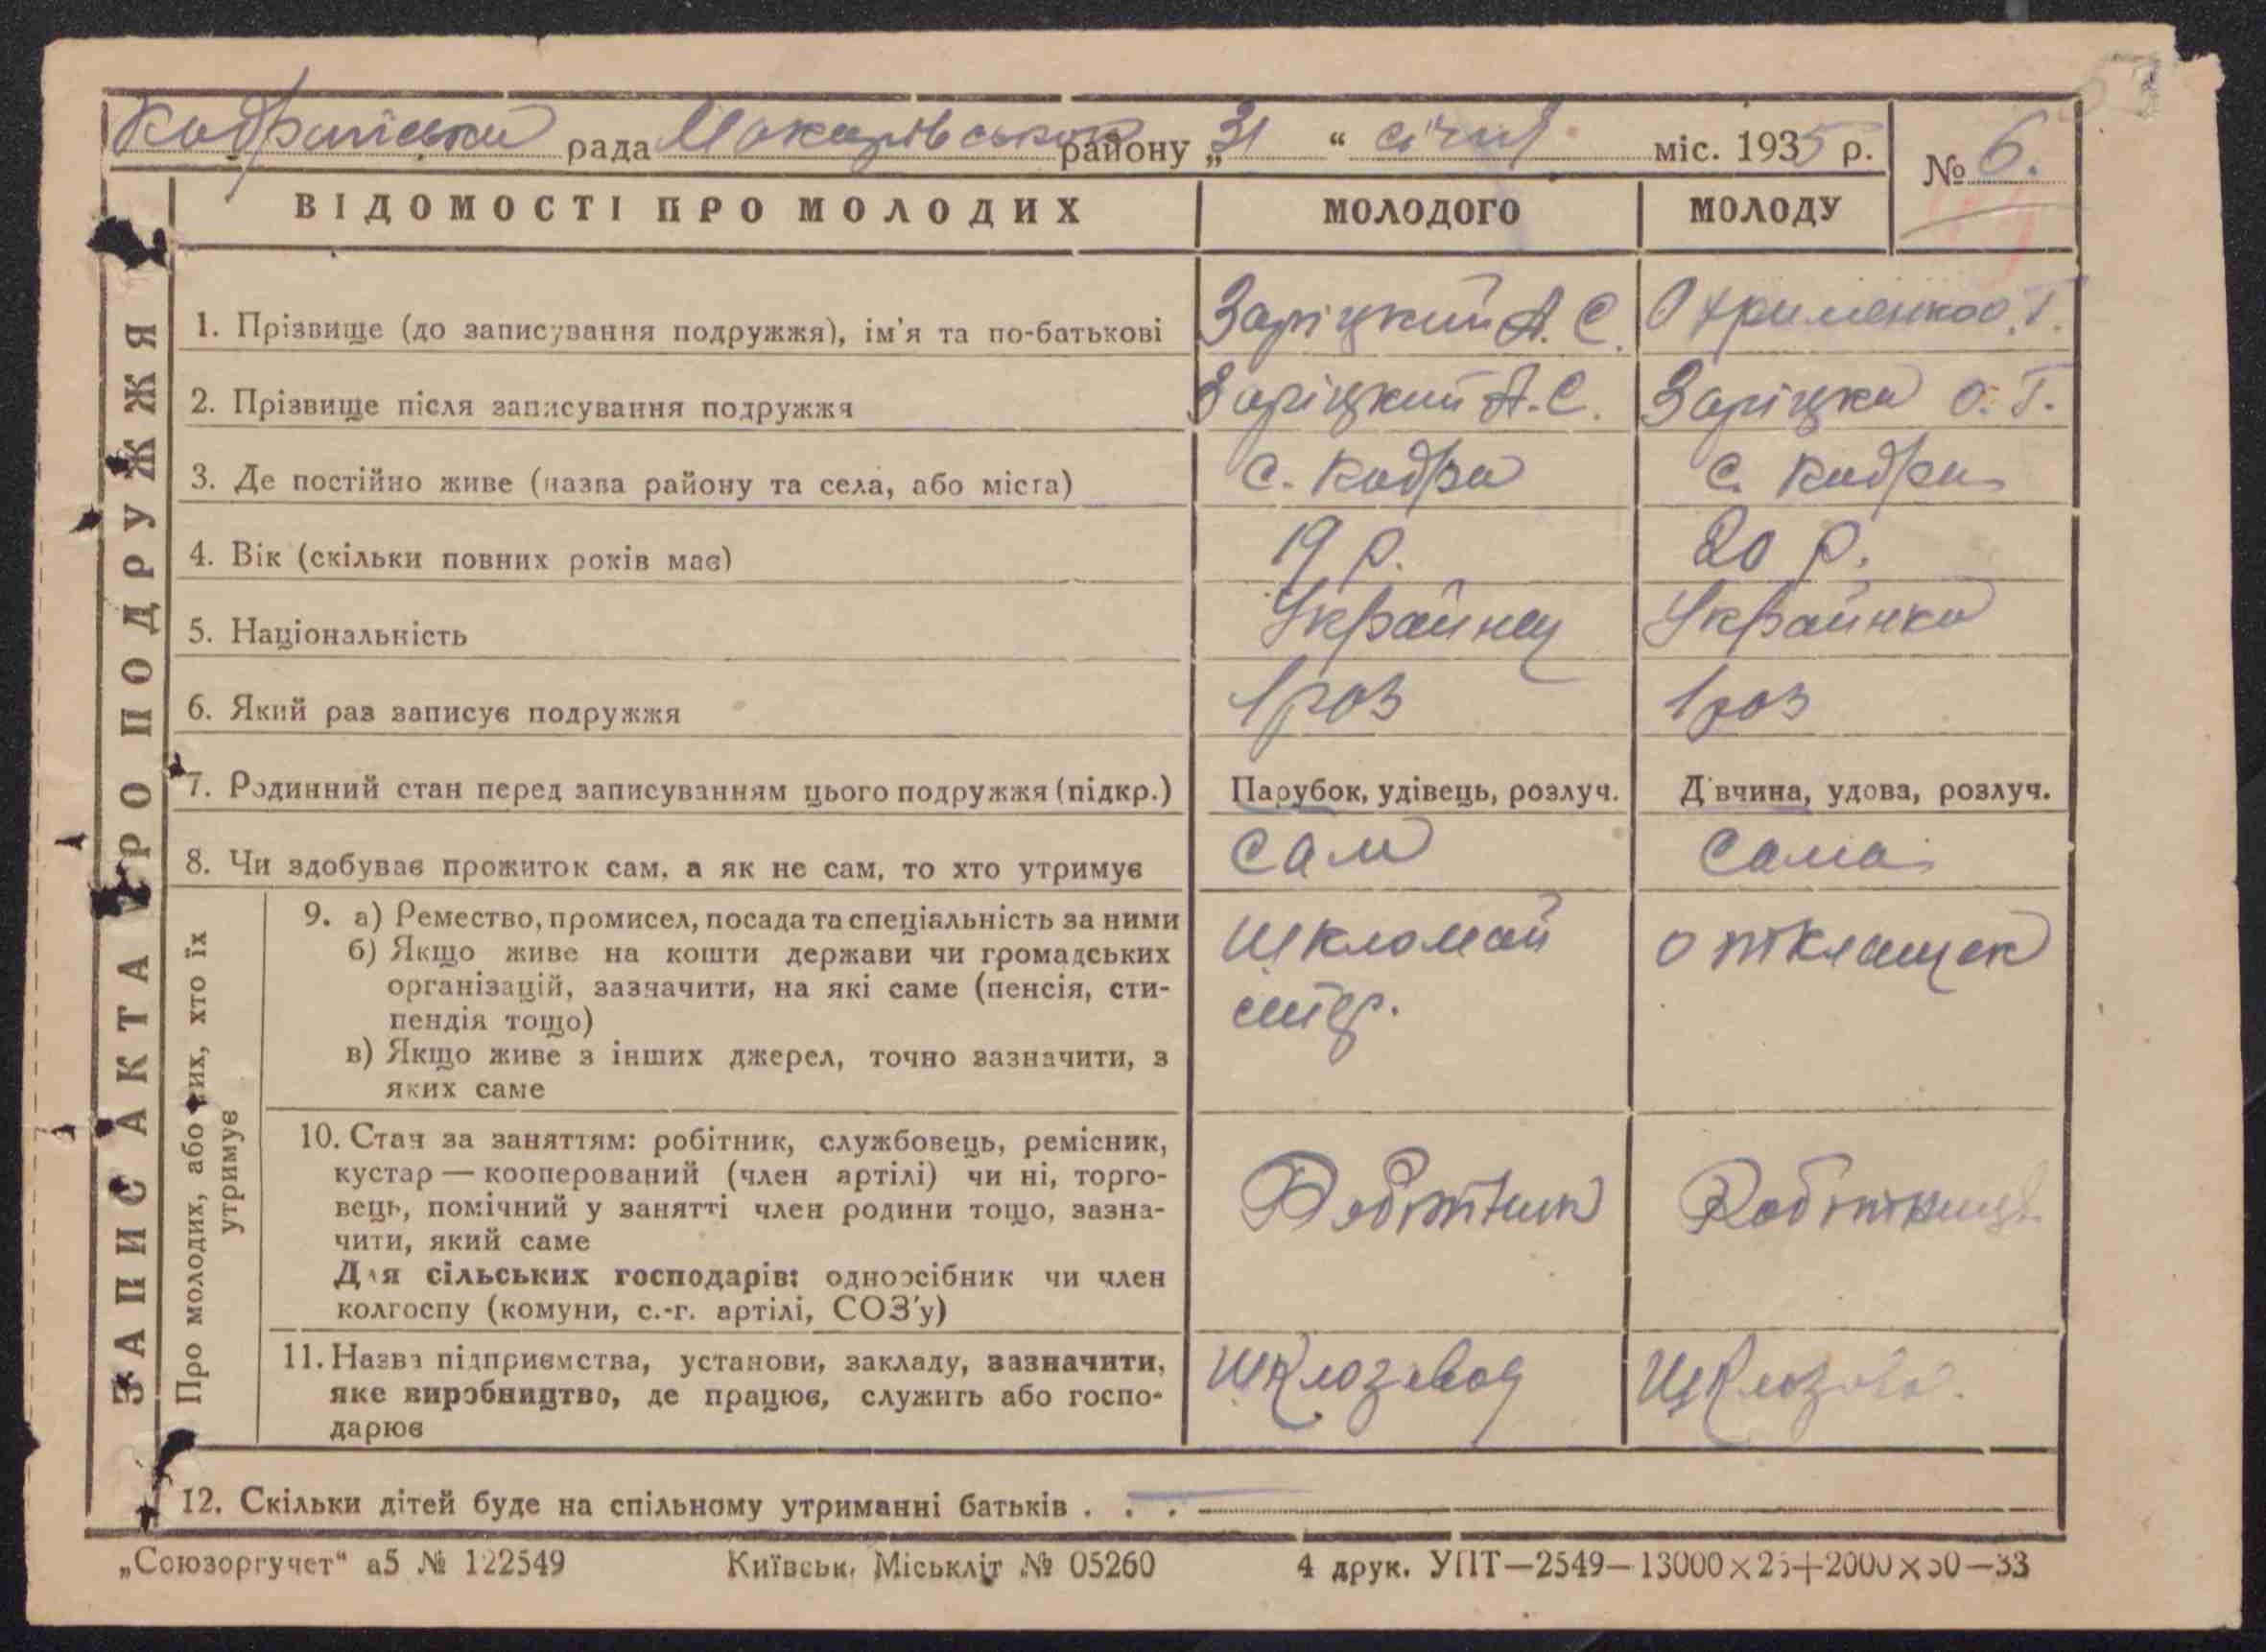 Кодрянська рада Макарівського району „31“ січня міс. 1935 р.
№ 6.
53
ВІДОМОСТІ ПРО МОЛОДИХ МОЛОДОГО МОЛОДУ
ЗАПИС АКТА ПРО ПОДРУЖЖЯ
1. Прізвище (до записування подружжя), ім'я та по-батькові Заріцкий А. С. Охрименко О. Г.
2. Прізвище після записування подружжя Заріцкий А. С. Заріцка О. Г.
3. Де постійно живе (назва району та села, або міста) с. Кодра с. Кодра
4. Вік (скільки повних років має) 19 р. 20 р.
5. Національність Украйнец Украйнка
6. Який раз записує подружжя 1 раз 1 раз
7. Родинний стан перед записуванням цього подружжя (підкр.) Парубок, удівець, розлуч. Дівчина, удова, розлуч.
8. Чи здобуває прожиток сам, а як не сам, то хто утримує сам сама
Про молодих, або тих, хто їх утримує
9. а) Ремество, промисел, посада та спеціальність за ними шкломай
б) Якщо живе на кошти держави чи громадських
організацій, зазначити, на які саме (пенсія, сти-
пендія тощо)
в) Якщо живе з інших джерел, точно зазначити, з
яких саме
10. Стан за заняттям: робітник, службовець, ремісник,
кустар — кооперований (член артілі) чи ні, торго-
вець, помічний у занятті член родини тощо, зазна- Робітник Робітниця
чити, який саме
Для сільських господарів: одноосібник чи член
колгоспу (комуни, с.-г. артілі, СОЗ'у)
11. Назва підприємства, установи, закладу, зазначити, Шклозавод Шклозавод
яке виробництво, де працює, служить або госпо-
дарює
12. Скільки дітей буде на спільному утриманні батьків . . . —
„Союзоргучет“ а5 № 122549 Київськ. Міськліт № 05260 4 друк. УПТ—2549—13000×25+2000×50—33